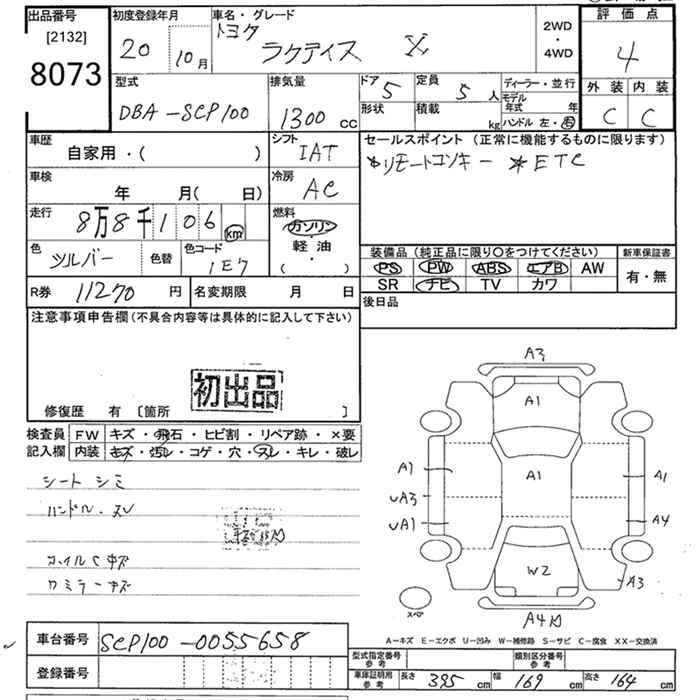 出品番号
[2132]
8073
初度登録年月
20 10月
車名・グレード
トヨタ
ラクティス X
2WD
・
4WD
評価点
4
外装 内装
C C
型式
DBA-SCP100
排気量
1300 cc
ドア 5
定員 5 人
形状
積載 kg
ディーラー・並行
モデル年式 年
ハンドル 左・右
車歴
自家用・( )
シフト
IAT
車検
年 月( 日)
冷房
AC
走行
8万8千106 km
燃料
ガソリン
軽油
( ・ )
色
シルバー
色替
色コード
1E7
R券 11270 円
名変期限 月 日
セールスポイント (正常に機能するものに限ります)
*リモートコンキー *ETC
装備品 (純正品に限り〇をつけてください)
PS PW ABS エアB AW
SR ナビ TV カワ
新車保証書
有・無
後日品
注意事項申告欄(不具合内容等は具体的に記入して下さい)
初出品
修復歴 有 [箇所 ]
検査員
記入欄
FW キズ・飛石・ヒビ割・リペア跡・×要
内装 キズ・汚レ・コゲ・穴・スレ・キレ・破レ
シート シミ
ハンドル・スレ
ホイルCキズ
カミラーキズ
A3
A1
A1
A1
UA3
UA1
A1
A4
W2
A3
A4
A-キズ E-エクボ U-凹み W-補修跡 S-サビ C-腐食 XX-交換済
車台番号 SCP100-0055658
登録番号
型式指定番号
参考
類別区分番号
参考
車庫証明用
参考
長さ 395 cm
幅 169 cm
高さ 164 cm